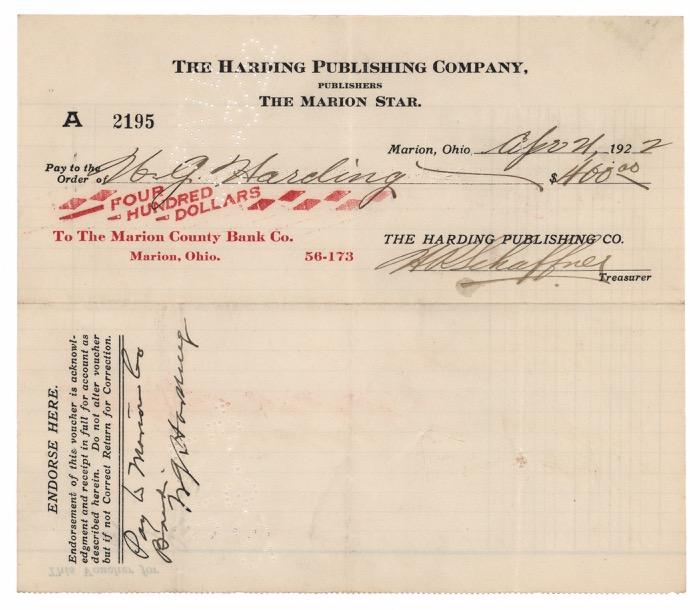 THE HARDING PUBLISHING COMPANY,
PUBLISHERS
THE MARION STAR.
A 2195
Marion, Ohio Apr 21, 1922
Pay to the
Order of W. G. Harding $400.00
FOUR
HUNDRED
DOLLARS
To The Marion County Bank Co.
Marion, Ohio. 56-173
THE HARDING PUBLISHING CO.
H R Schaffner
Treasurer
ENDORSE HERE.
Endorsement of this voucher is acknowl-
edgment and receipt in full for account as
described herein. Do not alter voucher
but if not Correct Return for Correction.
Pay to Marion Co
Bank
W G Harding
This Voucher for